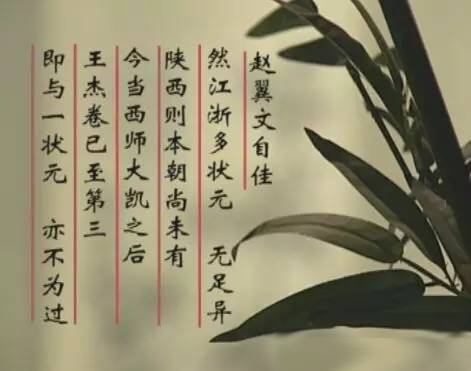 赵翼文自佳
然江浙多状元 无足异
陕西则本朝尚未有
今当西师大凯之后
王杰卷已至第三
即与一状元 亦不为过